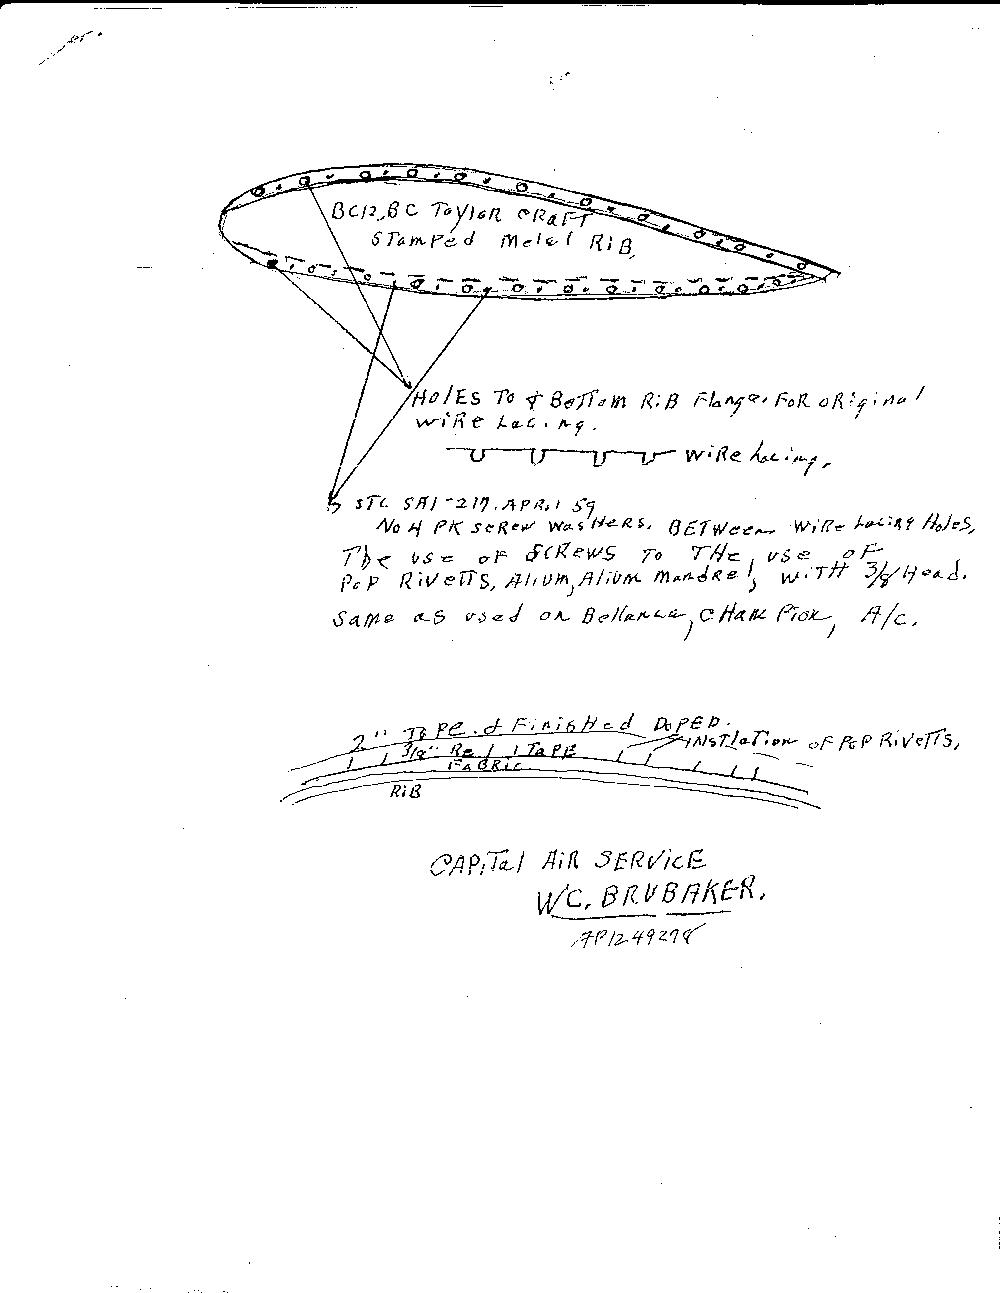 BC12,BC TaYlOR CRAFT
STamPed Metel RiB,
HOlES To & BoTTom RiB Flange. FOR ORiginal
WiRe Lacing.
WiRe Lacing,
STC SA1-217. APRil 59
No 4 PK SCREW WasHeRS. BETWeen WiRe Lacing Holes,
THe use oF SCREWS To THe use oF
PoP RiveTTS, Alium, Alium Mandrel, WiTH 3/8 Head.
Same as used on Bellanca, CHamPion, A/c.
2" TaPe & FinisHed DoPED.
INSTlaTion OF PoP RiveTTS,
3/8" Re / 1 TaPE
FABRic
RiB
CAPiTal AiR SERViCE
WC. BRUBAKER.
AP1249278